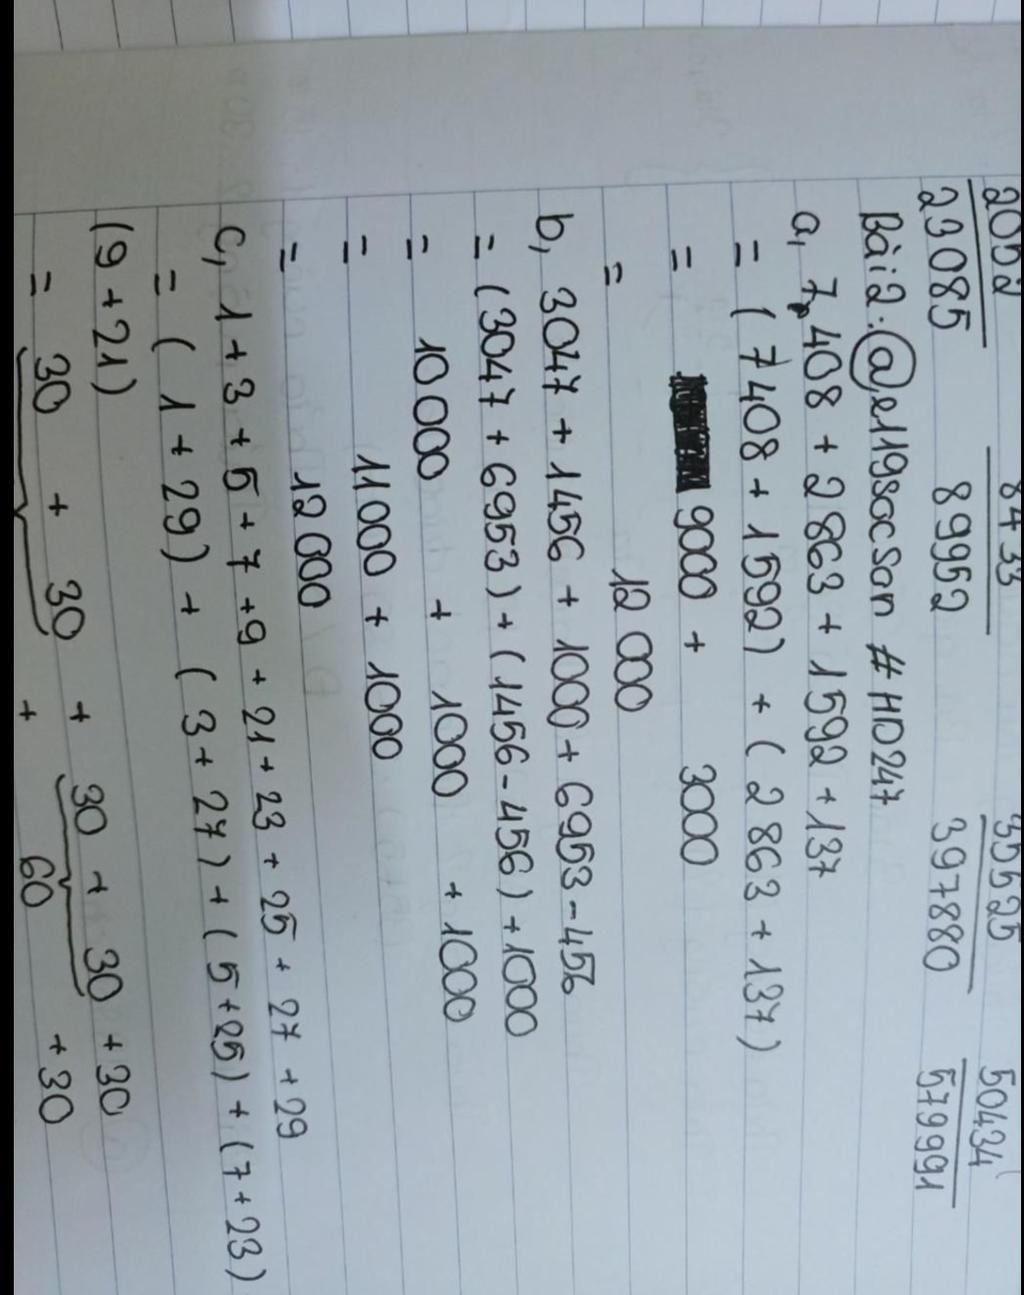 2052 8433 35525 50434
23085 89952 397880 579991
Bài 2. @e119socson #HO247
a, 7408 + 2863 + 1592 + 137
= (7408 + 1592) + (2863 + 137)
= 9000 + 3000
= 12 000
b, 3047 + 1456 + 1000 + 6953 - 456
= (3047 + 6953) + (1456 - 456) + 1000
= 10 000 + 1000 + 1000
= 11000 + 1000
= 12 000
c, 1 + 3 + 5 + 7 + 9 + 21 + 23 + 25 + 27 + 29
= (1 + 29) + (3 + 27) + (5 + 25) + (7 + 23)
(9 + 21)
= 30 + 30 + 30 + 30 + 30
+ 60 + 30